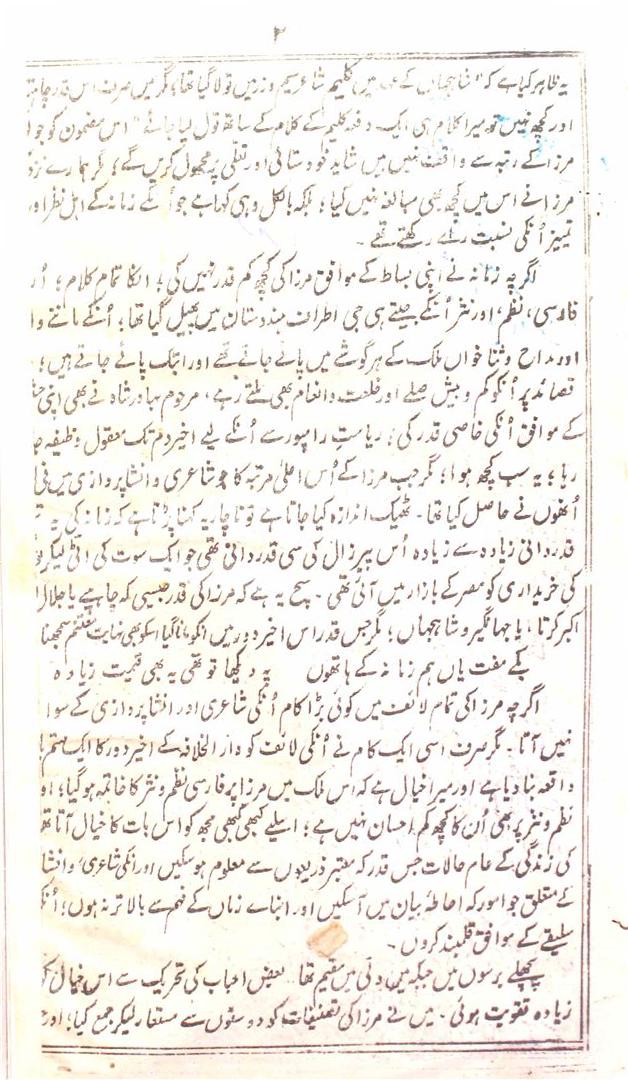 ۲
یہ ظاہر کیا ہے کہ "شاہجہاں کے عہد میں کلیم شاعر سیم و زر میں تولا گیا تھا؛ مگر میں صرف اس قدر چاہتا
اور کچھ نہیں تو میرا کلام ہی ایک دفعہ کلیم کے کلام کے ساتھ تول لیا جائے" اس مضمون کو جو
مرزا کے رتبہ سے واقف نہیں ہیں شاید خودستائی اور تعلّی پر محمول کریں گے؛ مگر ہمارے نزد
مرزا نے اس میں کچھ بھی مبالغہ نہیں کیا؛ بلکہ بالکل وہی کہا ہے جو اُنکے زمانہ کے اہل نظر اور
تمییز اُنکی نسبت رائے رکھتے تھے۔
اگرچہ زمانہ نے اپنی بساط کے موافق مرزا کی کچھ کم قدر نہیں کی؛ انکا تمام کلام؛ اُر
فارسی، نظم، اور نثر اُنکے جیتے ہی جی اطراف ہندستان میں پھیل گیا تھا؛ اُنکے ماننے وا
اور مداح و ثنا خواں ملک کے ہر گوشے میں پائے جاتے تھے اور ابتک پائے جاتے ہیں؛
قصائد پر اُنکو کم و بیش صلے اور خلعت و انعام بھی ملتے رہے، مرحوم بہادر شاہ نے بھی اپنی
کے موافق اُنکی خاصی قدر کی؛ ریاستِ رامپور سے اُنکے لیے اخیر دم تک معقول وظیفہ جا
رہا؛ یہ سب کچھ ہوا؛ مگر جب مرزا کے اُس اعلیٰ مرتبہ کا جو شاعری و انشا پردازی میں فی
اُنھوں نے حاصل کیا تھا۔ ٹھیک اندازہ کیا جاتا ہے تو ناچار یہ کہنا پڑتا ہے کہ زمانہ کی یہ
قدردانی زیادہ سے زیادہ اُس پیر زال کی سی قدردانی تھی جو ایک سوت کی انٹی لیکر
کی خریداری کو مصر کے بازار میں آئی تھی۔ سچ یہ ہے کہ مرزا کی قدر جیسی کہ چاہیے یا جلال ا
اکبر کرتا، یا جہانگیر و شاہجہاں؛ مگر جس قدر اس اخیر دور میں انکو مانا گیا اسکو بھی نہایت مغتنم سمجھنا
بکے مفت یاں ہم زمانہ کے ہاتھوں یہ دیکھا تو تھی یہ بھی قیمت زیادہ
اگرچہ مرزا کی تمام لائف میں کوئی بڑا کام اُنکی شاعری اور انشا پردازی کے سوا
نہیں آتا۔ مگر صرف اسی ایک کام نے اُنکی لائف کو دار الخلافہ کے اخیر دور کا ایک مہتم با
واقعہ بنا دیا ہے اور میرا خیال ہے کہ اس ملک میں مرزا پر فارسی نظم و نثر کا خاتمہ ہو گیا؛ او
نظم و نثر پر بھی اُن کا کچھ کم احسان نہیں ہے؛ اسلیے کبھی کبھی مجھ کو اس بات کا خیال آتا تھ
کی زندگی کے عام حالات جس قدر کہ معتبر ذریعوں سے معلوم ہو سکیں اور انکی شاعری و انشا
کے متعلق جو امور کہ احاطۂ بیان میں آ سکیں اور ابنائے زماں کے فہم سے بالاتر نہ ہوں؛ اُنک
سلیقے کے موافق قلمبند کروں۔
پچھلے برسوں میں جبکہ میں دلّی میں مقیم تھا۔ بعض احباب کی تحریک سے اس خیال کو
زیادہ تقویت ہوئی۔ میں نے مرزا کی تصنیفات کو دوستوں سے مستعار لیکر جمع کیا؛ اور